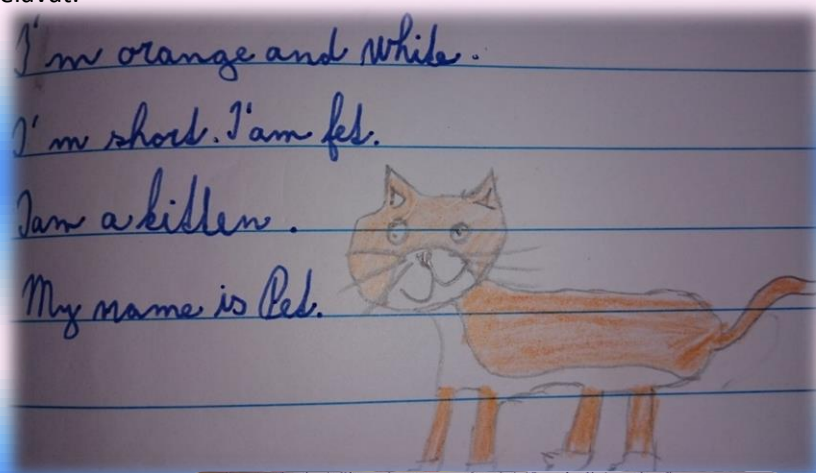 I'm orange and white.
I'm short. I'am fet.
Iam a kitten.
My name is Pet.